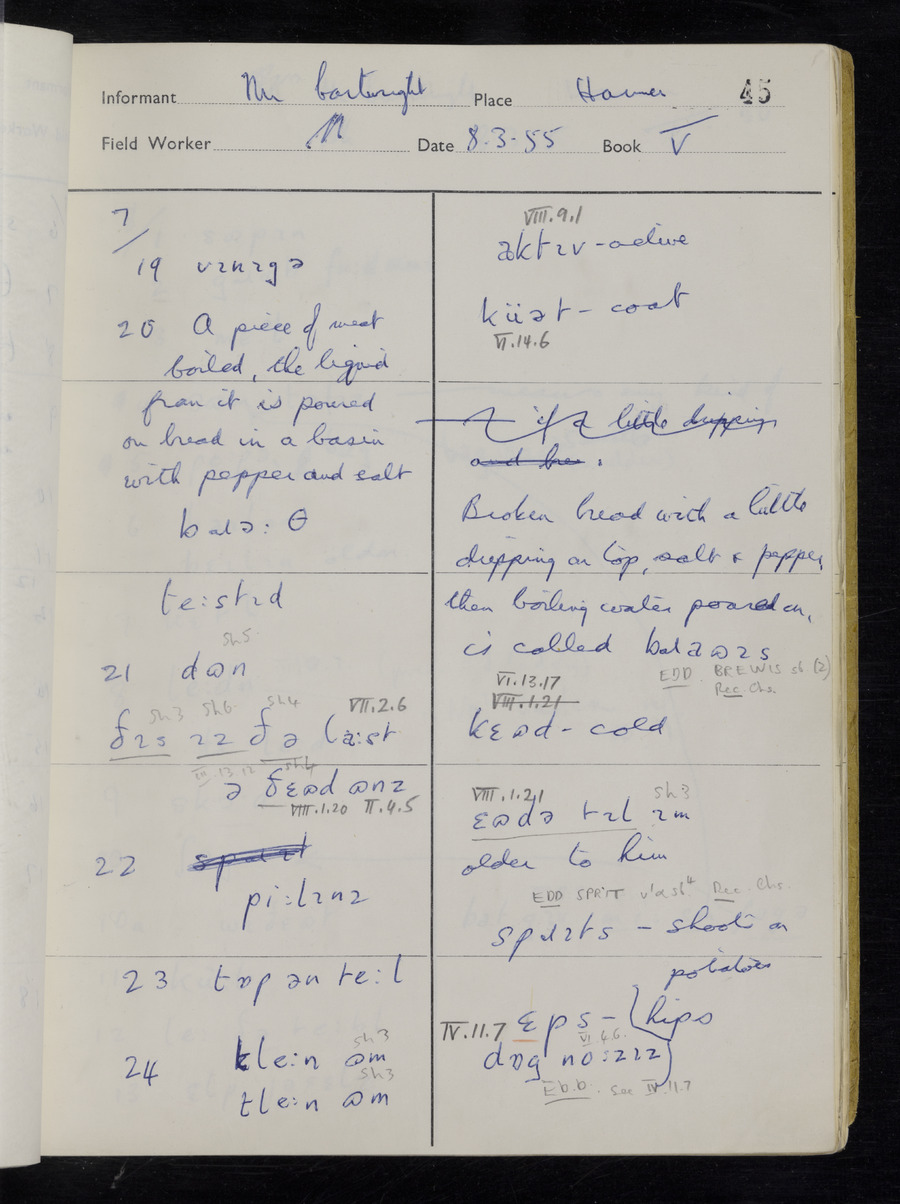 Informant Mr Cartwright Place Hanmer 45
Field Worker Date 8.3.55 Book V
7/
19 vɪnɪgə
20 A piece of meat
boiled, the liquid
from it is poured
on bread in a basin
with pepper and salt
te:stɪd
sh5
21 dɷn
sh3 sh6 sh4 VII.2.6
ðɪs ɪz ðə
III.13.12 sh.4
ə ðɛɷd ɷnz
VIII.1.20 II.4.5
22
pi:lɪnz
23 tɒp ən te:l
sh3
24 kle:n ɷm
sh3
tle:n ɷm
VIII.9.1
əktɪv - active
küət - coat
VI.14.6
if a little dripping
and bre
Broken bread with a little
dripping on top, salt & pepper,
then boiling water poured on,
is called
EDD BREWIS sb (2)
Rec. Chs.
VI.13.17
VIII.1.21
kɛɷd - cold
VIII.1.21 sh3
ɛɷdə tɪl ɪm
older to him
EDD SPRIT v¹ & sb⁴ Rec. Chs.
spɹɪts - shoots on
potatoes
IV.11.7 ɛps - hips
VI.4.6.
dɒg no:zɪz
E.b.b. see IV.11.7